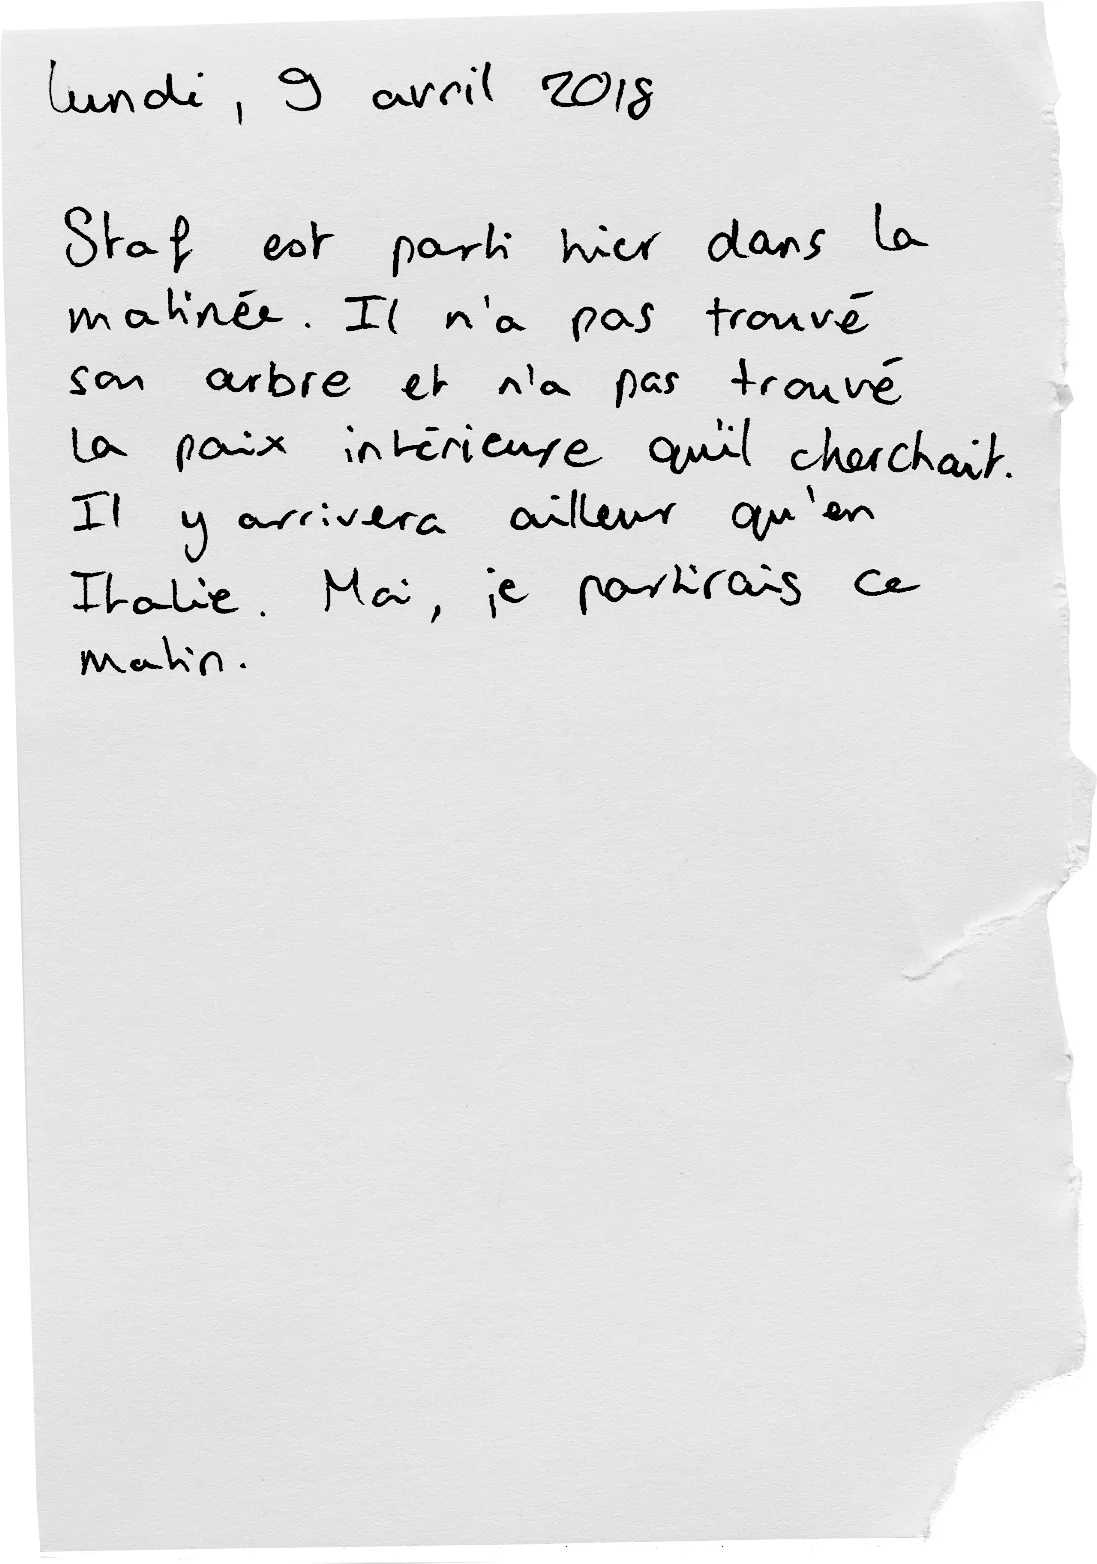 lundi, 9 avril 2018
Staf est parti hier dans la
matinée. Il n'a pas trouvé
son arbre et n'a pas trouvé
la paix intérieure qu'il cherchait.
Il y arrivera ailleur qu'en
Italie. Moi, je partirais ce
matin.